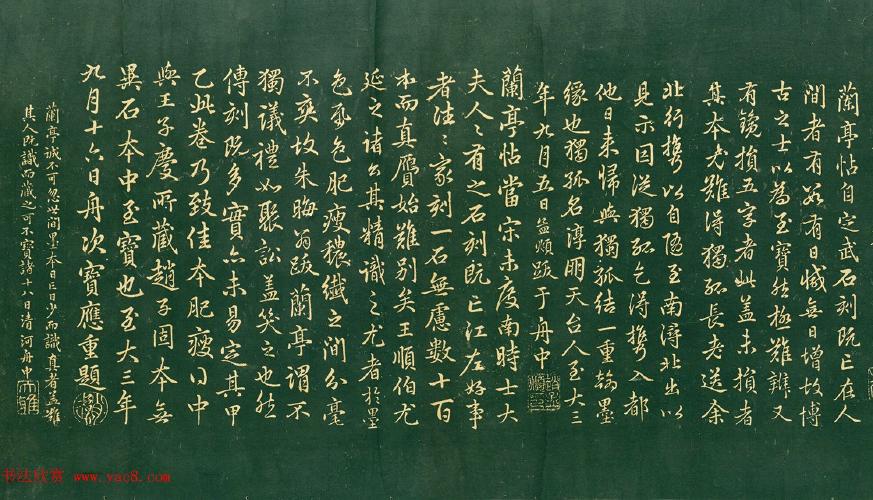 蘭亭帖自定武石刻既亡在人
間者有數有日減無日增故博
古之士以為至寶然極難辨又
有鐫損五字者此盖未損者
其本尤難得獨孤長老送余
北行攜以自隨至南潯北出以
見示因從獨孤乞得攜入都
他日来歸與獨孤結一重翰墨
緣也獨孤名淳朋天台人至大三
年九月五日孟頫跋于舟中
蘭亭帖當宋未度南時士大
夫人〻有之石刻既亡江左好事
者往〻家刻一石無慮數十百
本而真贗始難別矣王順伯尤
延之諸公其精識之尤者於墨
色紙色肥瘦穠纖之間分毫
不爽故朱晦翁跋蘭亭謂不
獨議禮如聚訟盖笑之也然
傳刻既多實亦未易定其甲
乙此卷乃致佳本肥瘦得中
與王子慶所藏趙子固本無
異石本中至寶也至大三年
九月十六日舟次寶應重題
蘭亭誠不可忽世間墨本日亡日少而識真者盖難
其人既識而藏之可不寶諸十八日清河舟中
书法欣赏 www.yac8.com